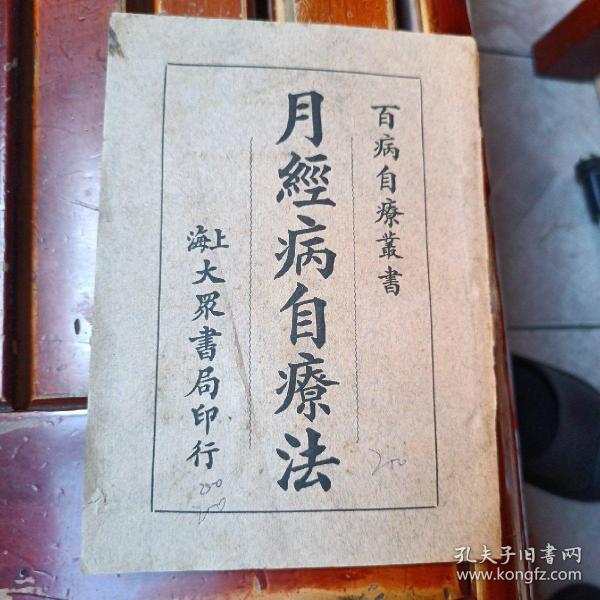 百病自療叢書
月經病自療法
上海
大眾書局印行
200
200
孔夫子旧書网
www.kongfz.com